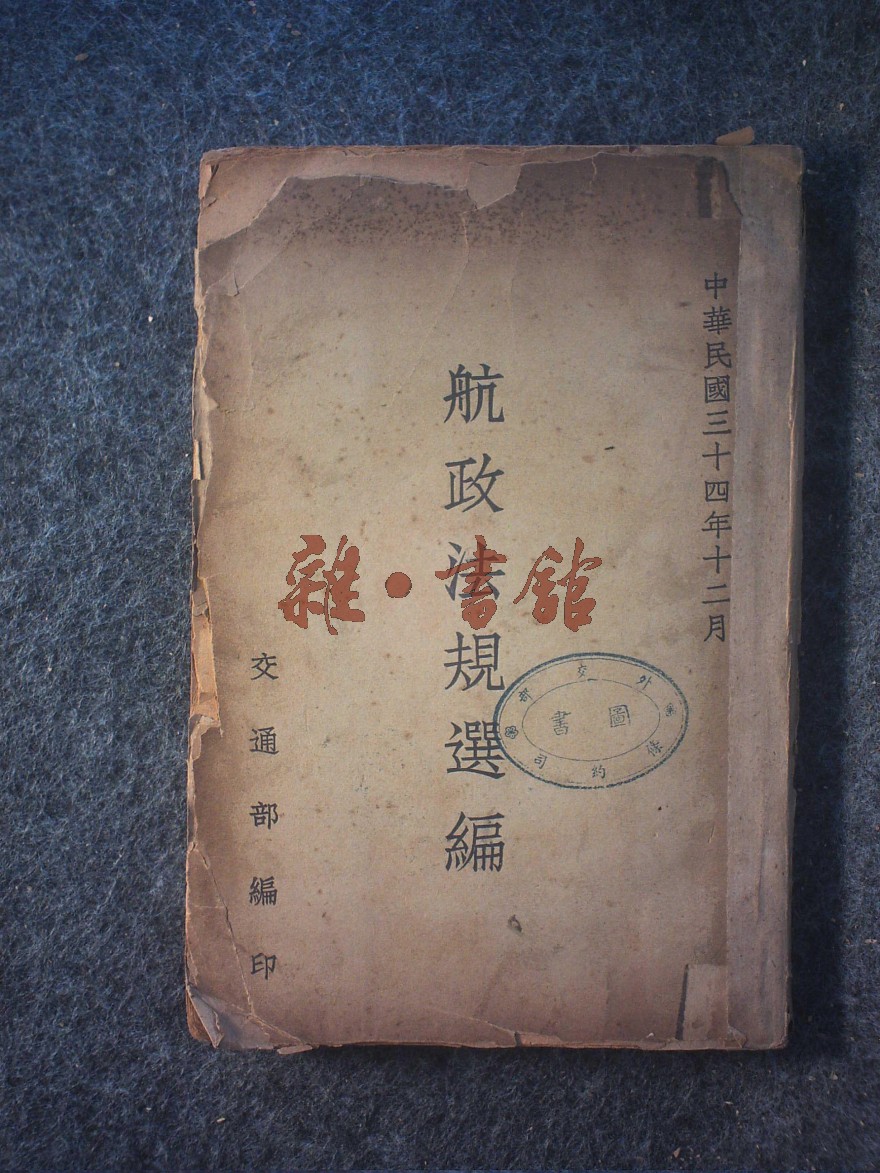 中華民國三十四年十二月
航政法規選編
交通部編印
雜·書館
外交部
條約司
圖書